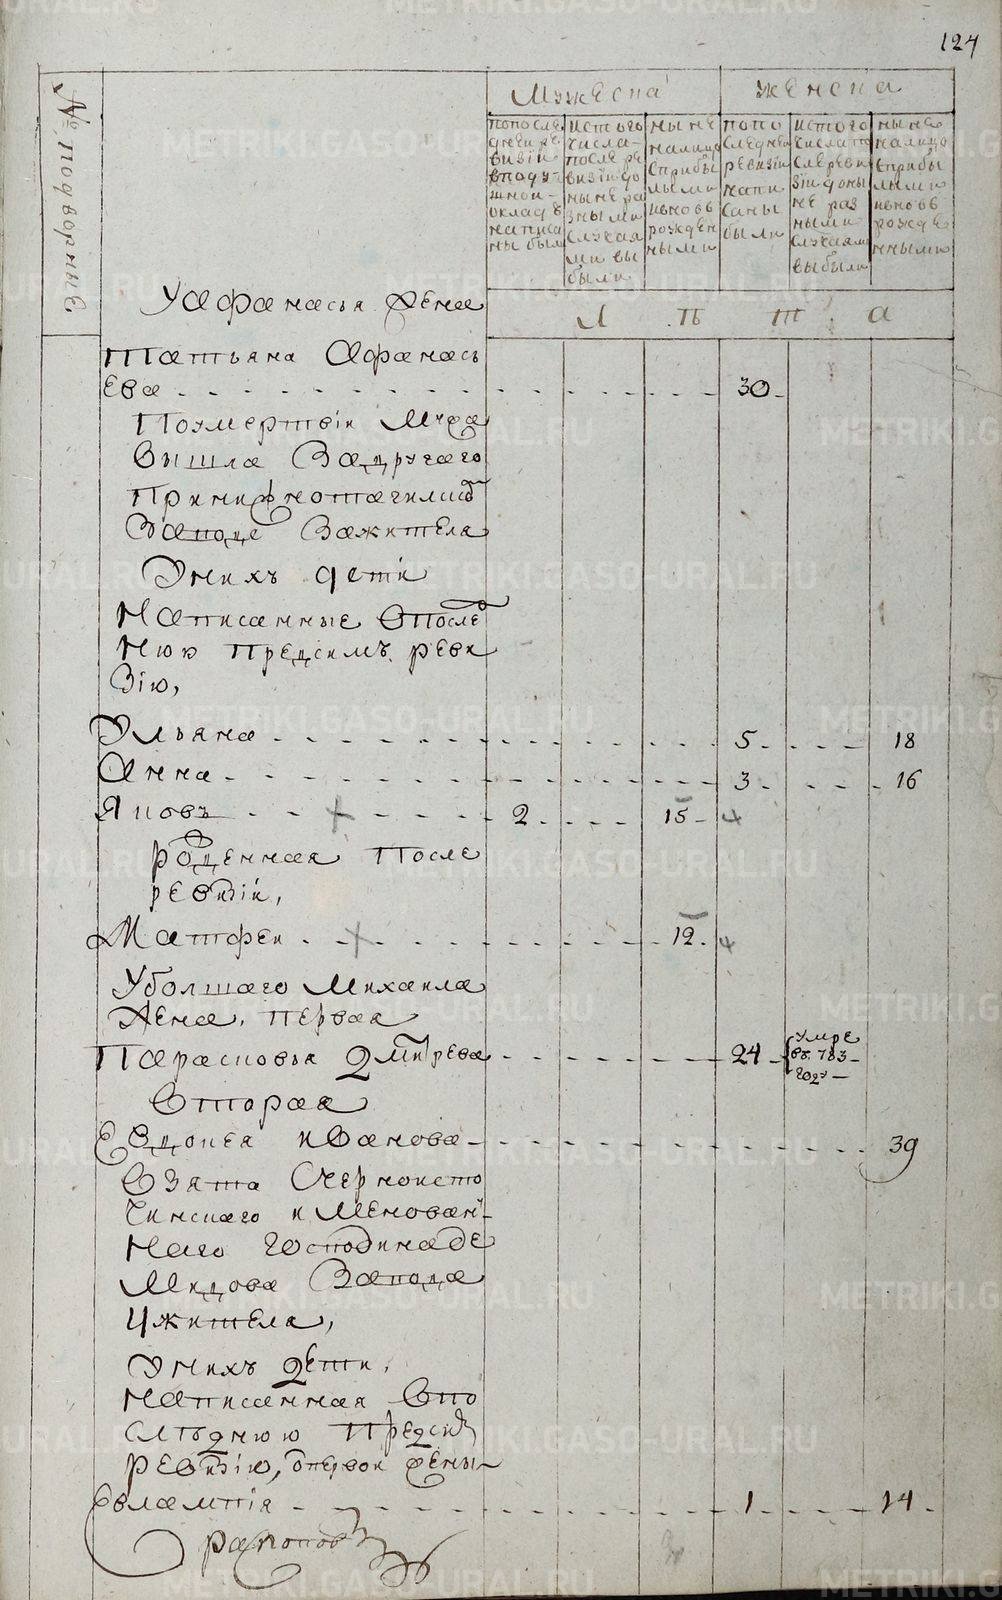 124
№ подворные
Мужеска
женска
попосле
днеи ре
визіи
вподу
шной
окладъ
написа
ны были
истого
числа
после ре
визіи до
ныне ра
зными
случая
ми вы
были
ныне
налицо
сприбы
лыми
ивновь
рожден
ными
попо
следнеи
ревизіи
напи
саны
были
истого
числа по
сле реви
зіи доны
не раз
ными
случаями
выбыли
ныне
налицо
сприбы
лыми
ивновь
рожде
нными
Лѣта
Уафанасья жена
Татьяна Афанась
ева 30
Посмертіи Мужа
вышла Задругаго
Заводе Зажителя
Уних дети
Написанные впосле
нюю предсимъ реви
зію,
Ульяна 5 18
Анна 3 16
Яковъ 2 15
рожденная после
ревизіи,
Матфеи 12
Уболшаго Михаила
жена, первая
Парасковья Дмитрева 24 умре
въ 783
году
вторая
Евдокея иванова 39
взята Счерноисто
чинскаго именован
наго Господина де
Мидова Завода
Ужителя,
Уних дети,
написанная впо
слѣднюю предсим
ревизію, отпервои жены
Евлампія 1 14